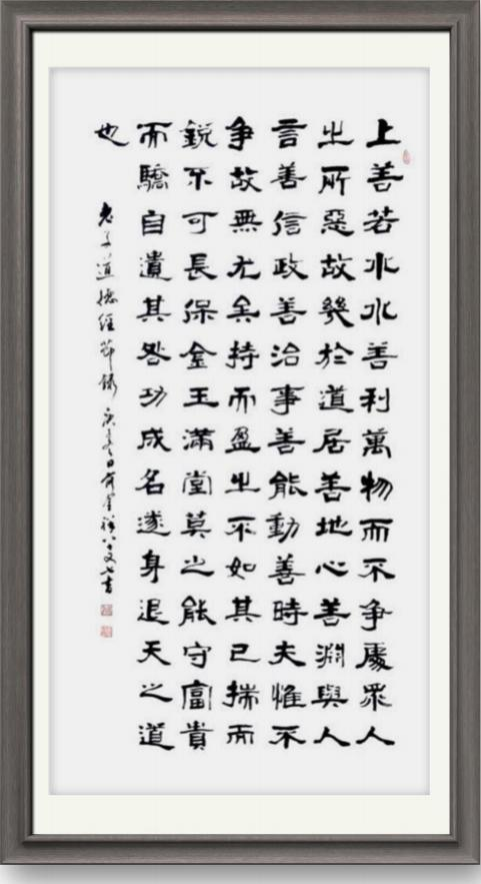 上善若水水善利萬物而不争處衆人
之所惡故幾於道居善地心善淵與人
言善信政善治事善能動善時夫惟不
争故無尤矣持而盈之不如其已揣而
鋭不可長保金玉滿堂莫之能守富貴
而驕自遺其咎功成名遂身退天之道
也
老子道德經節錄